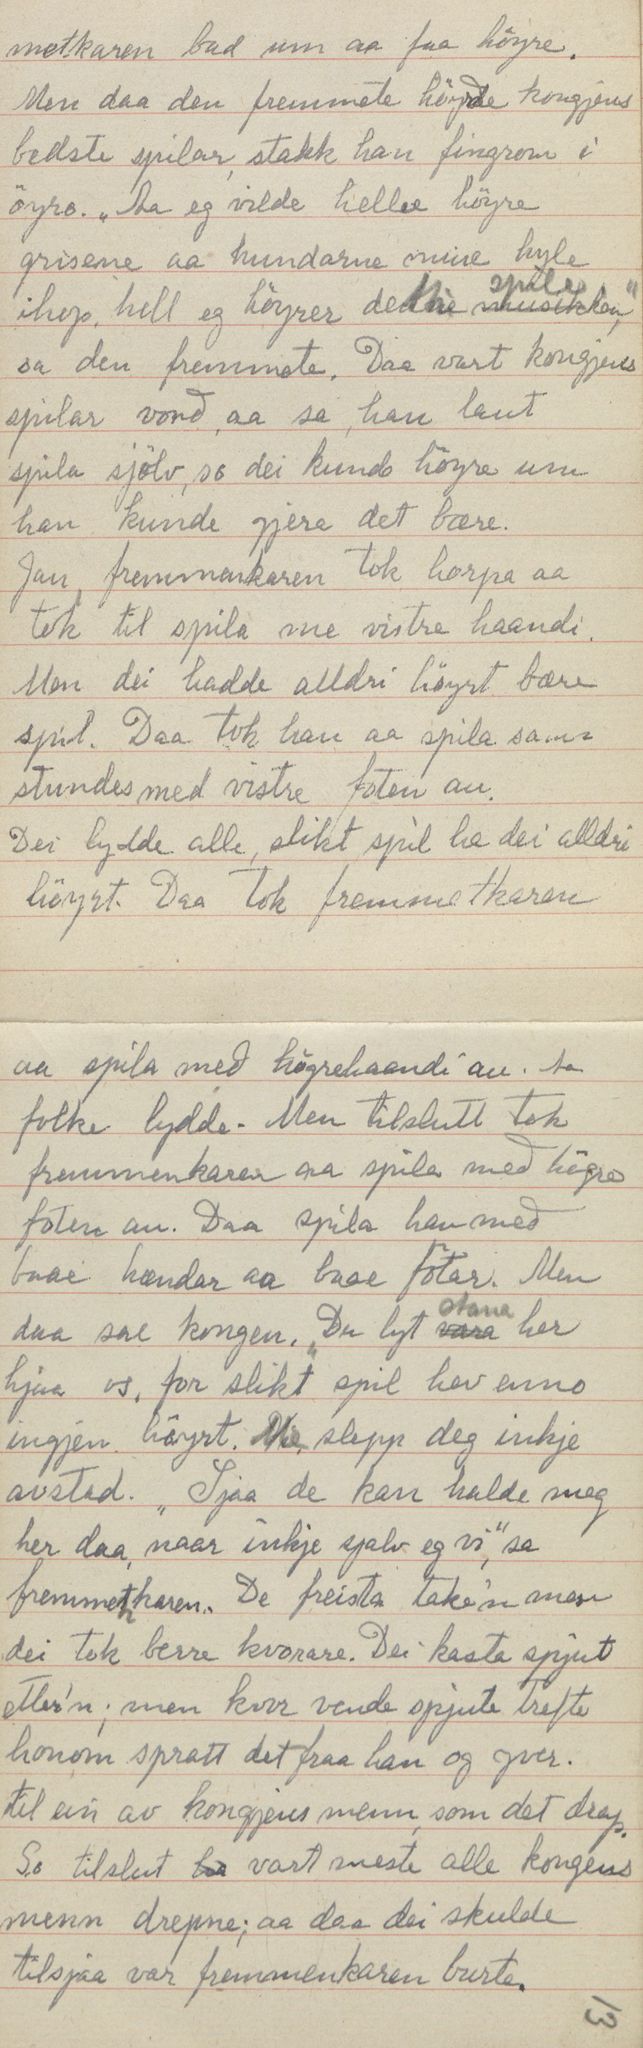 metkaren bad um aa faa höyre.
Men daa den fremmete höyrde kongjens
bedste spilar, stakk han fingrom i
öyro. „Aa eg vilde hellee höyre
grisene aa hundarne mine hyle
ihop, hell eg höyrer denne musikken spile,"
sa den fremmete. Daa vart kongjens
spilar vond, aa sa, han laut
spila sjölv, so dei kunde höyre um
han kunde gjera det bære.
Jau, fremmenkaren tok horpa aa
tok til spila me vistre haandi.
Men dei hadde alldri höyrt bære
spil. Daa tok han aa spila sam-
stundes med vistre foten au.
Dei lydde alle, slikt spil ha dei alldri
höyrt. Daa tok fremmetkaren
aa spila med högrehaandi au. Aa
folke lydde. Men tilslutt tok
fremmenkaren aa spila med högre
foten au. Daa spila han med
baae hændar aa baae fötar. Men
daa sae kongen. „Du lyt vara stana her
hjaa os, for slikt spil hev enno
ingjen höyrt. Me slepp deg inkje
avstad. „Sjaa de kan halde meg
her daa, naar inkje sjølv eg vi," sa
fremmenkaren. De freista take'n men
dei tok berre kvorare. Dei kasta spjut
etter'n; men kvor vende spjute trefte
honom spratt det fraa han og yver.
til ein av kongjens menn, som det drap.
So tilslut vart meste alle kongens
menn drepne; aa daa dei skulde
tilsjaa var fremmenkaren burte.
13